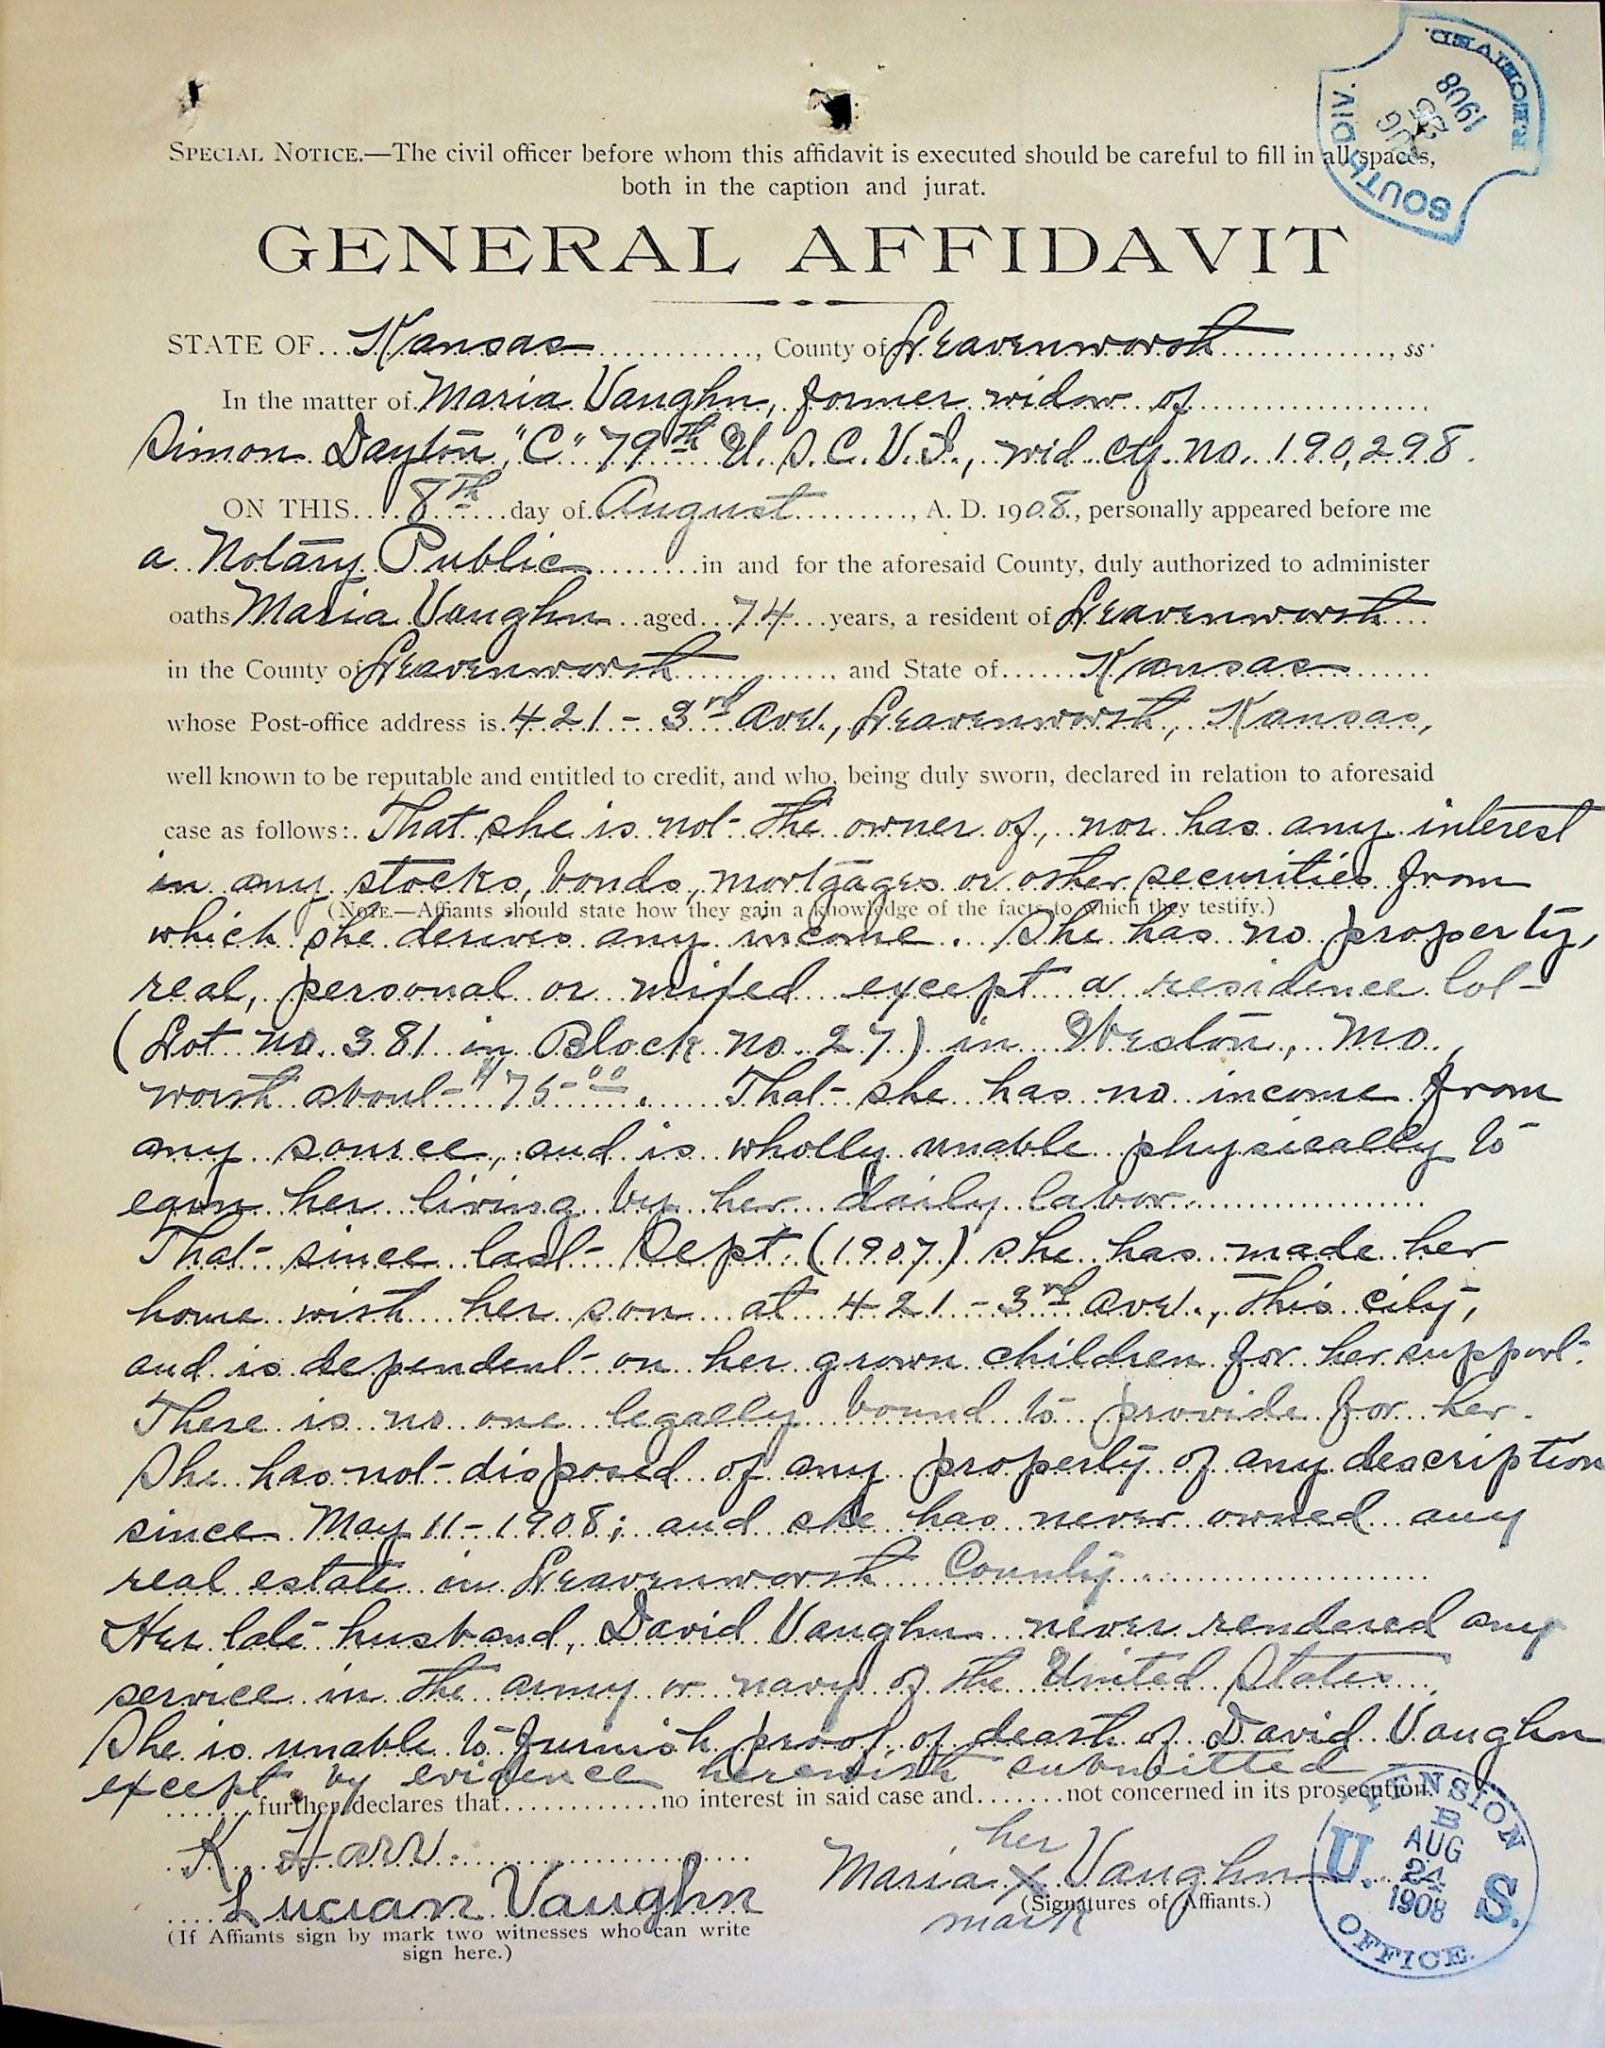 RECEIVED
AUG 25 1908
SOUTH DIV.
SPECIAL NOTICE.—The civil officer before whom this affidavit is executed should be careful to fill in all spaces,
both in the caption and jurat.
GENERAL AFFIDAVIT
STATE OF Kansas, County of Leavenworth, ss.
In the matter of Maria Vaughn, former widow of
Simon Dayton, "C" 79th U.S.C.V.I., wid. ctf. no. 190,298.
ON THIS 8th day of August, A. D. 1908, personally appeared before me
a Notary Public in and for the aforesaid County, duly authorized to administer
oaths Maria Vaughn aged 74 years, a resident of Leavenworth
in the County of Leavenworth, and State of Kansas
whose Post-office address is 421-3rd Ave., Leavenworth, Kansas,
well known to be reputable and entitled to credit, and who, being duly sworn, declared in relation to aforesaid
case as follows: That she is not the owner of, nor has any interest
in any stocks, bonds, mortgages or other securities from
(NOTE.—Affiants should state how they gain a knowledge of the facts to which they testify.)
which she derives any income. She has no property,
real, personal or mixed except a residence lot
(Lot no. 381 in Block no. 27) in Weston, Mo.,
worth about $75.00. That she has no income from
any source, and is wholly unable physically to
earn her living by her daily labor
That since last Sept. (1907) she has made her
home with her son at 421-3rd Ave., this city,
and is dependent on her grown children for her support.
There is no one legally bound to provide for her.
She has not disposed of any property of any description
since May 11-1908; and she has never owned any
real estate in Leavenworth County
Her late husband, David Vaughn never rendered any
service in the army or navy of the United States.
She is unable to furnish proof of death of David Vaughn
except by evidence herewith submitted
further declares that no interest in said case and not concerned in its prosecution.
K. Harv
her
Maria X Vaughn
Lucian Vaughn
(Signatures of Affiants.)
mark
(If Affiants sign by mark two witnesses who can write
sign here.)
U. S. PENSION OFFICE
B
AUG
24
1908